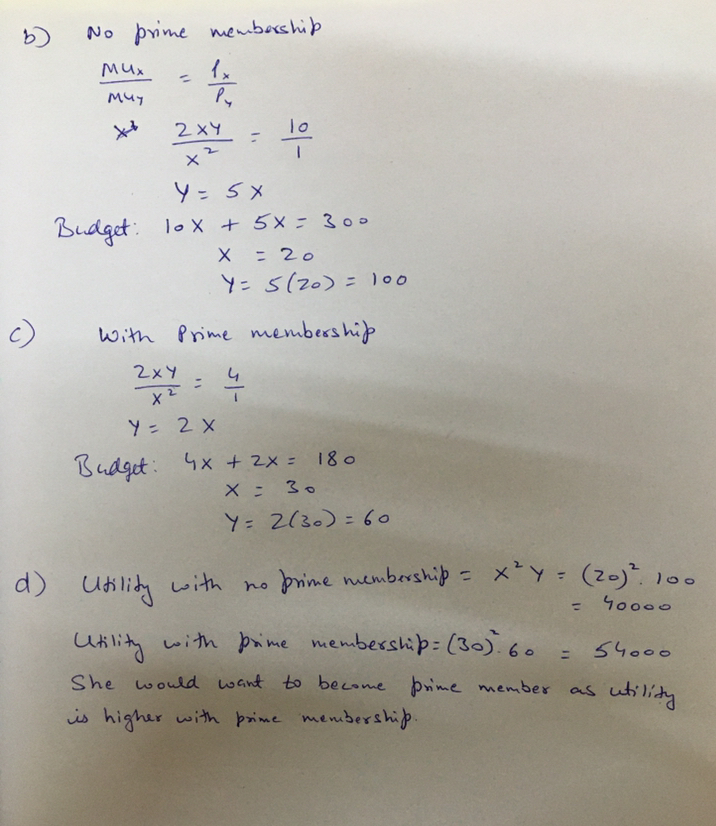 b) No prime membership
MUx / MUy = Px / Py
2XY / X² = 10 / 1
Y = 5X
Budget: 10X + 5X = 300
X = 20
Y = 5(20) = 100
c) With Prime membership
2XY / X² = 4 / 1
Y = 2X
Budget: 4X + 2X = 180
X = 30
Y = 2(30) = 60
d) Utility with no prime membership = X²Y = (20)². 100
= 40000
Utility with prime membership = (30)². 60 = 54000
She would want to become prime member as utility
is higher with prime membership.